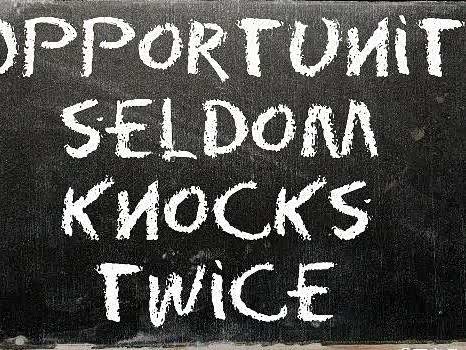 OPPORTUNIT
SELDOM
KNOCKS
TWICE